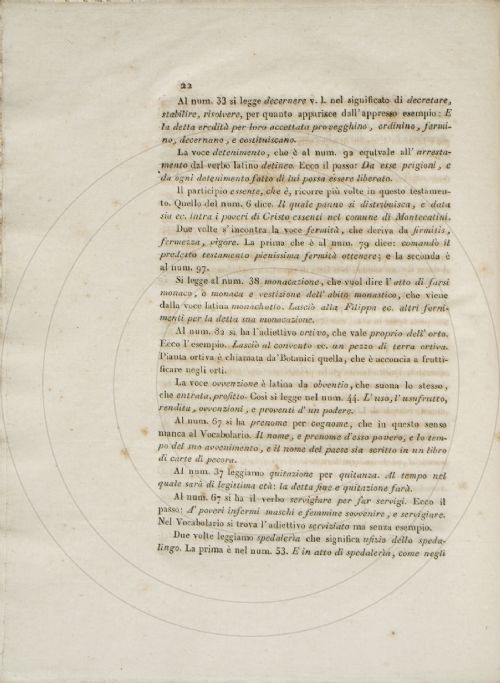 22
Al num. 33 si legge decernere v. l. nel significato di decretare,
stabilire, risolvere, per quanto apparisce dall'appresso esempio: E
la detta eredità per loro accettata provegghino, ordinino, fermi-
no, decernano, e costituiscano.
La voce detenimento, che è al num. 92 equivale all'arresta-
mento dal verbo latino detineo. Ecco il passo: Da esse prigioni, e
da ogni detenimento fatto di lui possa essere liberato.
Il participio essente, che è, ricorre più volte in questo testamen-
to. Quello del num. 6 dice. Il quale panno si distribuisca, e data
sia ec. intra i poveri di Cristo essenti nel comune di Montecatini.
Due volte s'incontra la voce fermità, che deriva da firmitis,
fermezza, vigore. La prima che è al num. 79 dice: comandò il
predetto testamento pienissima fermità ottenere; e la seconda è
al num. 97.
Si legge al num. 38 monacazione, che vuol dire l'atto di farsi
monaco, o monaca e vestizione dell'abito monastico, che viene
dalla voce latina monachatio. Lasciò alla Filippa ec. altri forni-
menti per la detta sua monacazione.
Al num. 82 si ha l'adiettivo ortivo, che vale proprio dell'orto.
Ecco l'esempio. Lasciò al convento ec. un pezzo di terra ortiva.
Pianta ortiva è chiamata da'Botanici quella, che è acconcia a frutti-
ficare negli orti.
La voce ovvenzione è latina da obventio, che suona lo stesso,
che entrata, profitto. Così si legge nel num. 44. L'uso, l'usufrutto,
rendita, ovvenzioni, e proventi d'un podere.
Al num. 67 si ha prenome per cognome, che in questo senso
manca al Vocabolario. Il nome, e prenome d'esso povero, e lo tem-
po del suo avvenimento, e il nome del paese sia scritto in un libro
di carte di pecora.
Al num. 37 leggiamo quitazione per quitanza. Al tempo nel
quale sarà di legittima età: la detta fine e quitazione farà.
Al num. 67 si ha il verbo servighare per far servigi. Ecco il
passo: A' poveri infermi maschi e femmine sovvenire, e servigiare.
Nel Vocabolario si trova l'adiettivo serviziato ma senza esempio.
Due volte leggiamo spedalerìa che significa ufizio dello speda-
lingo. La prima è nel num. 53. E in atto di spedalerìa, come negli